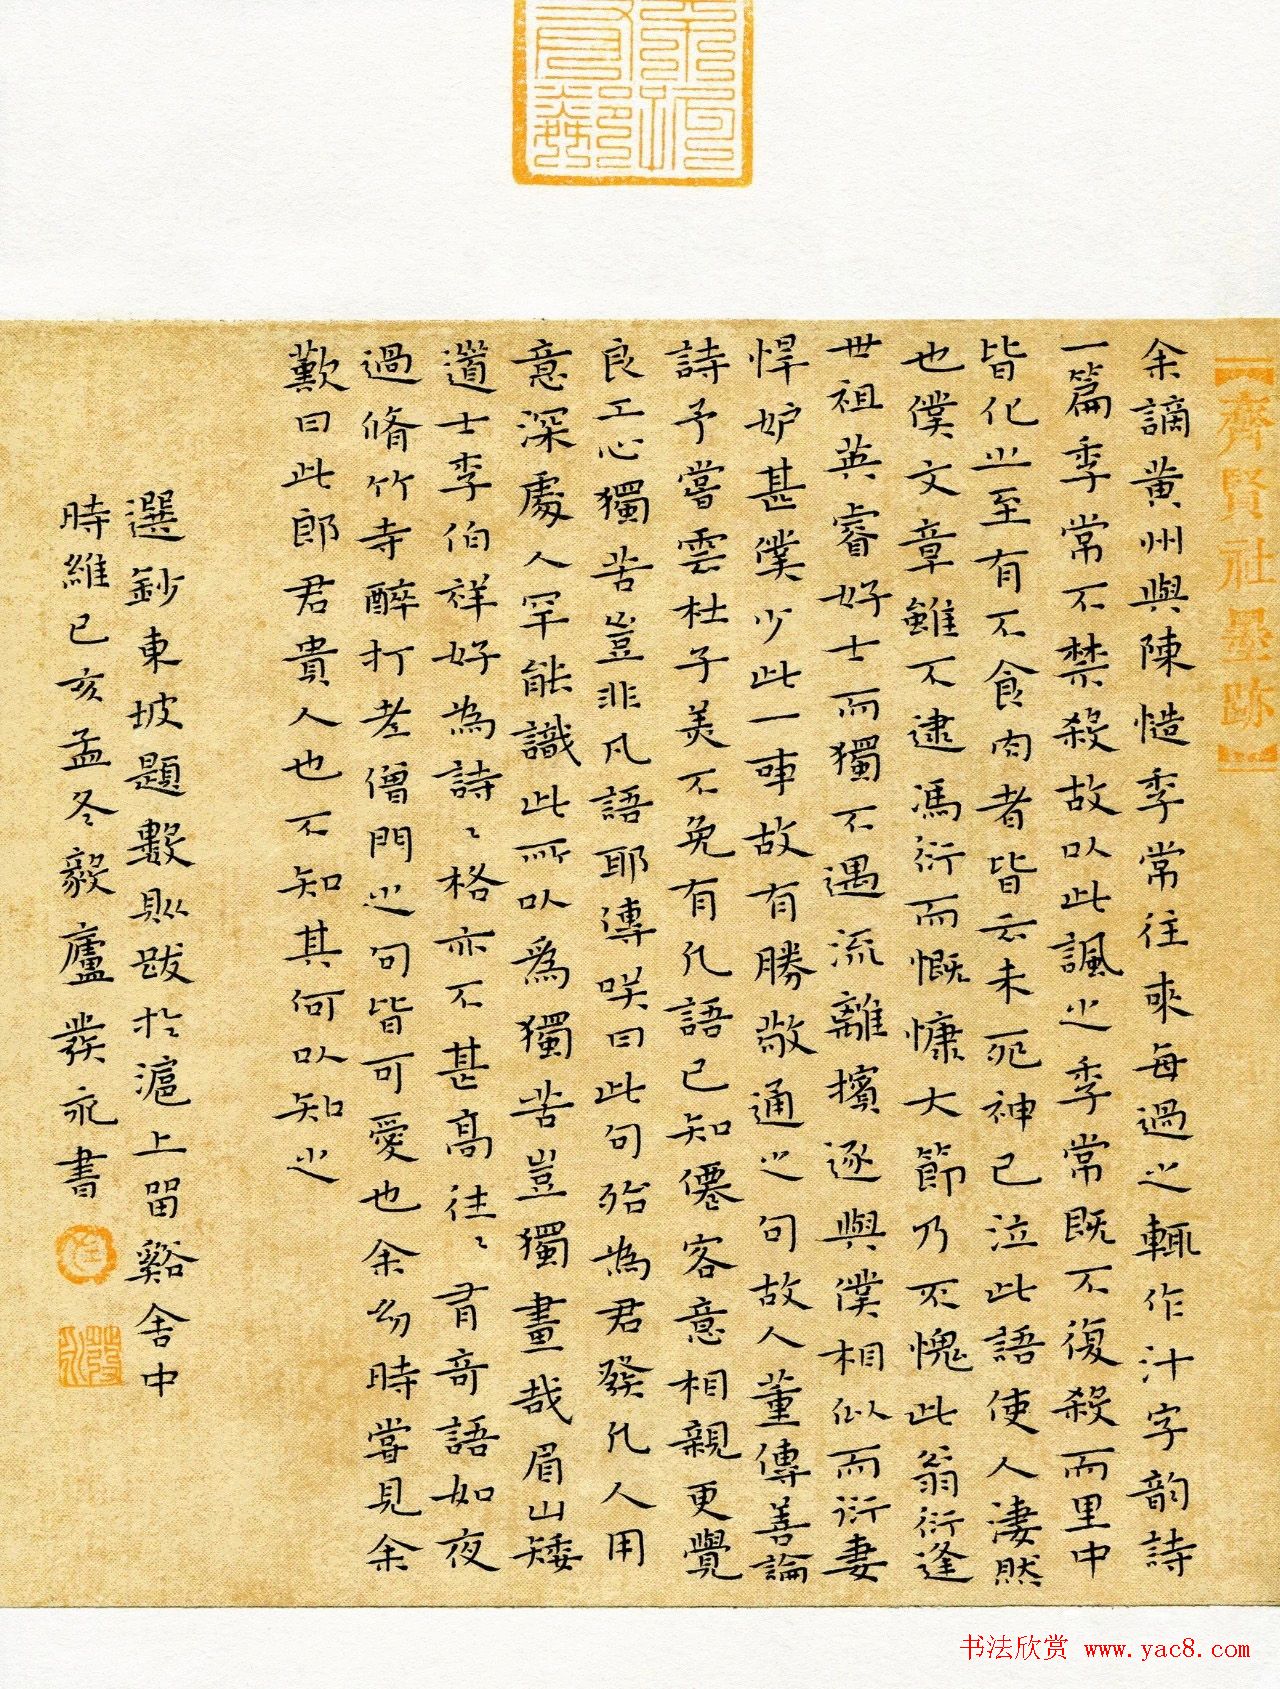 【齊賢社墨跡】
余謫黄州與陳慥季常往來每過之輒作汁字韵詩
一篇季常不禁殺故以此諷之季常既不復殺而里中
皆化之至有不食肉者皆云未死神已泣此語使人淒然
也僕文章雖不逮馮衍而慨慷大節乃不愧此翁衍逢
世祖英睿好士而獨不遇流離擯逐與僕相似而衍妻
悍妒甚僕少此一事故有勝敬通之句故人董傳善論
詩予嘗雲杜子美不免有凡語已知僊客意相親更覺
良工心獨苦豈非凡語耶傳咲曰此句殆為君發凡人用
意深處人罕能識此所以為獨苦豈獨畫哉眉山矮
道士李伯祥好為詩〻格亦不甚高往〻有奇語如夜
過脩竹寺醉打老僧門之句皆可愛也余幼時嘗見余
歎曰此郎君貴人也不知其何以知之
選鈔東坡題數則跋於滬上留谿舍中
時維己亥孟冬毅廬癸永書
书法欣赏 www.yac8.com